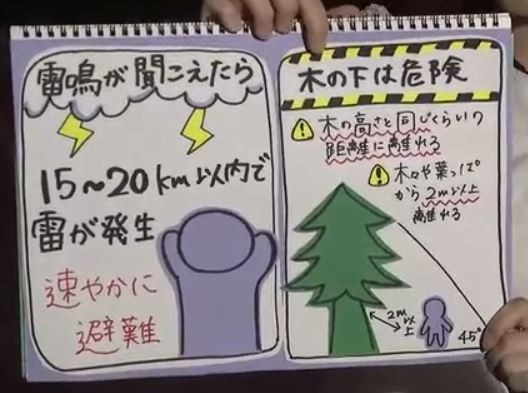 雷鳴が聞こえたら
15~20km以内で
雷が発生
速やかに
避難
木の下は危険
木の高さと同じくらいの
距離に離れる
木々や葉っぱ
から2m以上
離れる
2m以上
45°